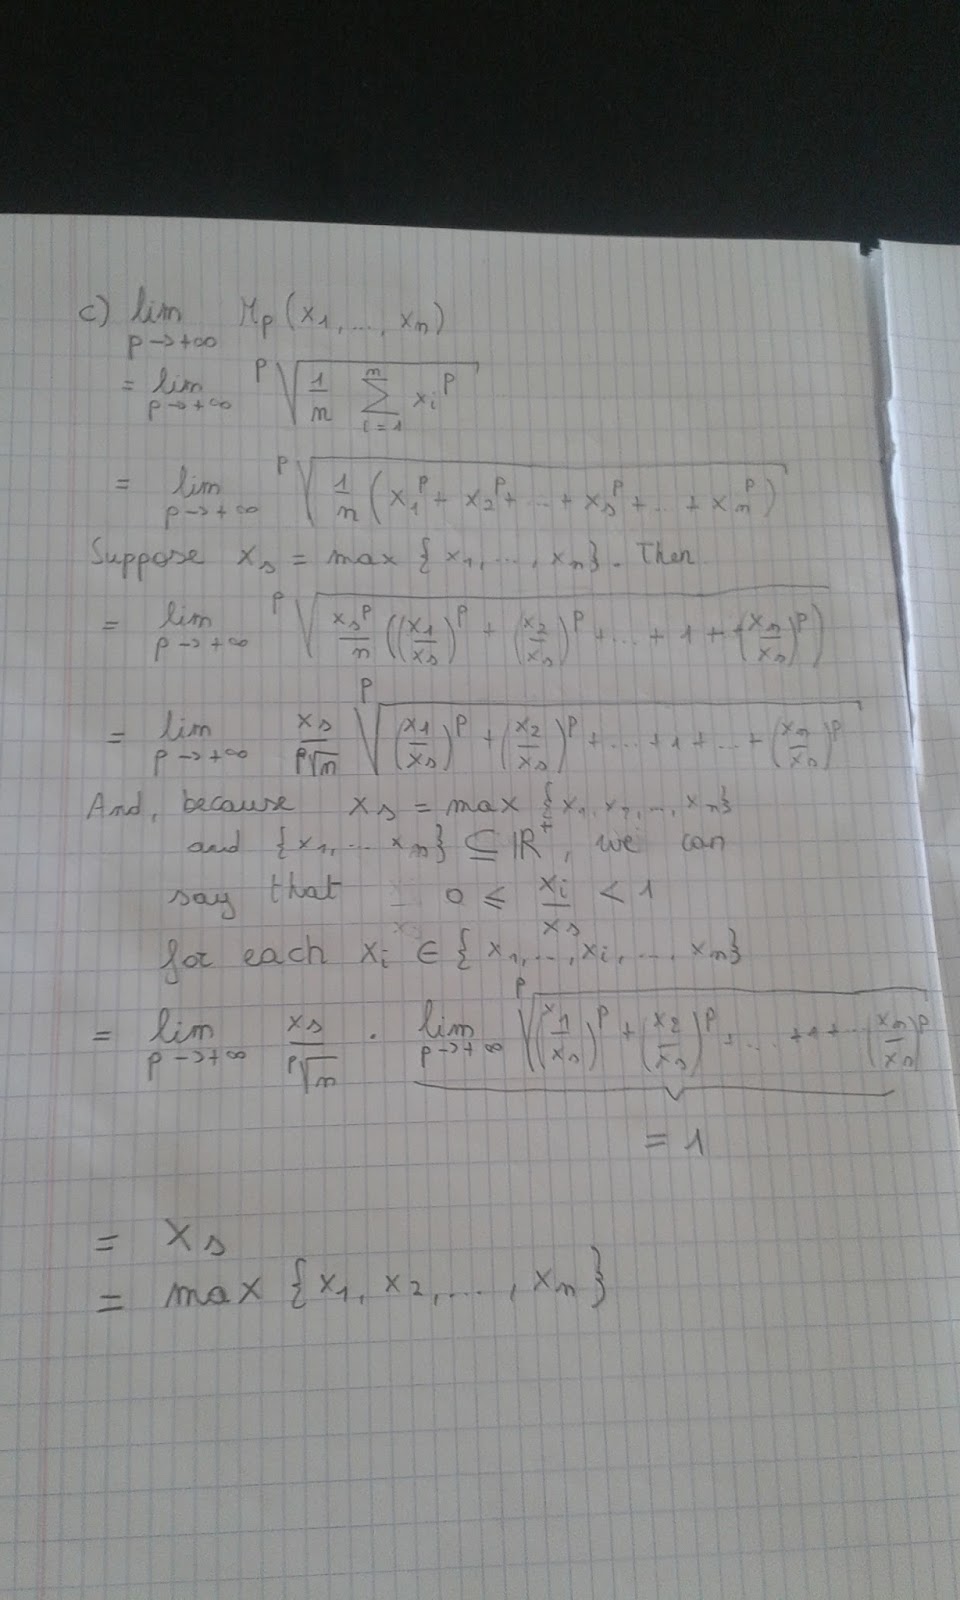 c) lim_{p→+∞} M_p(x_1, ..., x_n)
= lim_{p→+∞} ᵖ√(1/n ∑_{i=1}^{n} x_i^p)
= lim_{p→+∞} ᵖ√(1/n (x_1^p + x_2^p + ... + x_s^p + ... + x_n^p))
Suppose x_s = max {x_1, ..., x_n}. Then
= lim_{p→+∞} ᵖ√(x_s^p/n ((x_1/x_s)^p + (x_2/x_s)^p + ... + 1 + + (x_n/x_s)^p))
= lim_{p→+∞} x_s/ᵖ√n ᵖ√((x_1/x_s)^p + (x_2/x_s)^p + ... + 1 + ... + (x_n/x_s)^p)
And, because x_s = max {x_1, x_2, ..., x_n}
and {x_1, ... x_n} ⊆ ℝ^+, we can
say that 0 ≤ x_i/x_s < 1
for each x_i ∈ {x_1, ..., x_i, ..., x_n}
= lim_{p→+∞} x_s/ᵖ√n · lim_{p→+∞} ᵖ√((x_1/x_s)^p + (x_2/x_s)^p + ... + 1 + ... (x_n/x_s)^p)
= 1
= x_s
= max {x_1, x_2, ..., x_n}